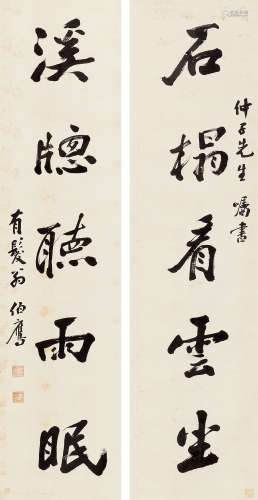 石榻看雲坐
仲子先生嘱書
溪牕聽雨眠
有髮翁伯鷹